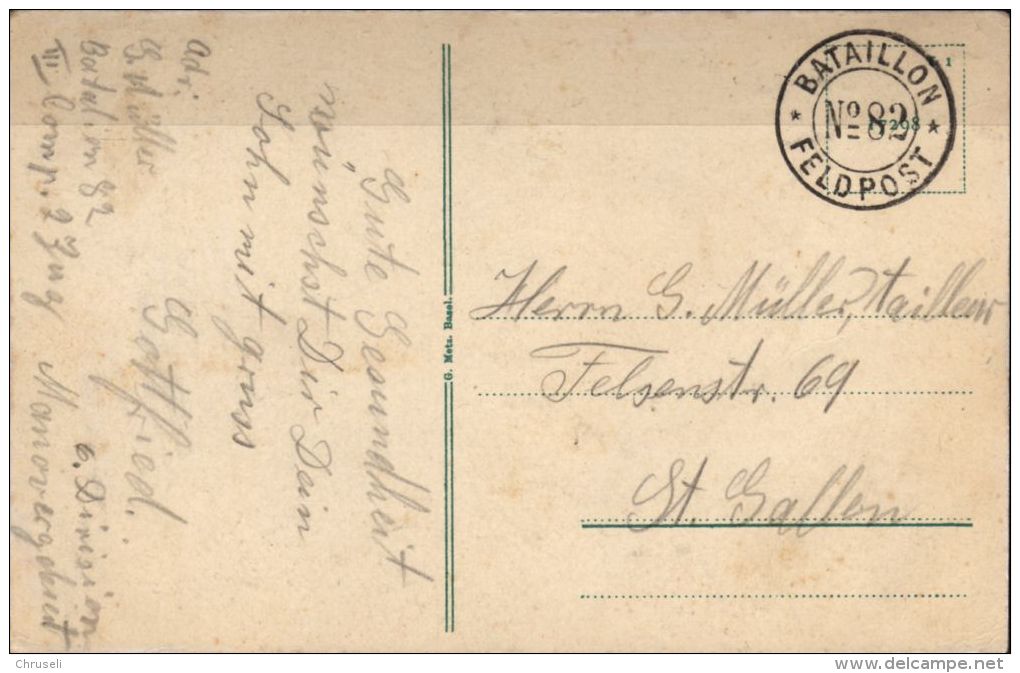 BATAILLON
Nº 82
FELDPOST
17298
1
Herrn G. Müller, tailleur
Felsenstr. 69
St. Gallen
G. Metz. Basel.
Gute Gesundheit
wünscht Dir Dein
Sohn mit gruss
Gottfried.
Adr.
G Müller
Batalion 82
III Comp. 2 Zug
6. Division
Manövergebiet
Chruseli
delcampe.net